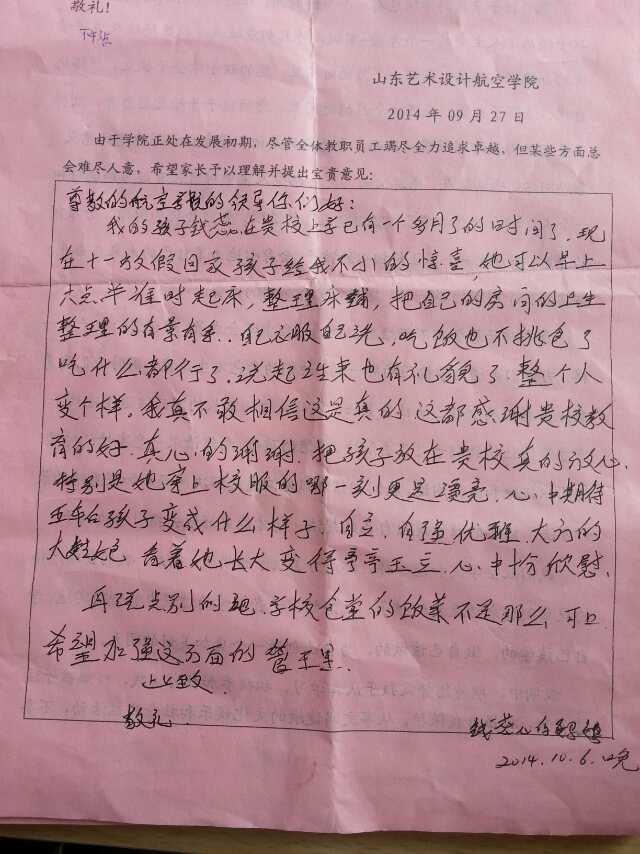 敬礼!
山东艺术设计航空学院
2014 年 09 月 27 日
由于学院正处在发展初期,尽管全体教职员工竭尽全力追求卓越,但某些方面总
会难尽人意,希望家长予以理解并提出宝贵意见:
尊敬的航空学校的领导你们好:
我的孩子钱蕊在贵校上学已有一个多月了的时间了.现
在十一放假回家孩子给我不小的惊喜,她可以早上
六点半准时起床,整理床铺,把自己的房间的卫生
整理的有条有理..自己衣服自己洗,吃饭也不挑食了
吃什么都行了.说起话来也有礼貌了整个人
变个样,我真不敢相信这是真的这都感谢贵校教
育的好.真心的谢谢.把孩子放在贵校真的放心.
特别是她穿上校服的哪一刻更是漂亮.心中期待
五年后孩子变成什么样子.自立.自强优雅.大方的
大姑娘 看着她长大变得亭亭玉立.心中十分欣慰.
再说点别的吧.学校食堂的饭菜不是那么可口
希望加强这方面的管理.
此致
敬礼
2014.10.6.晚